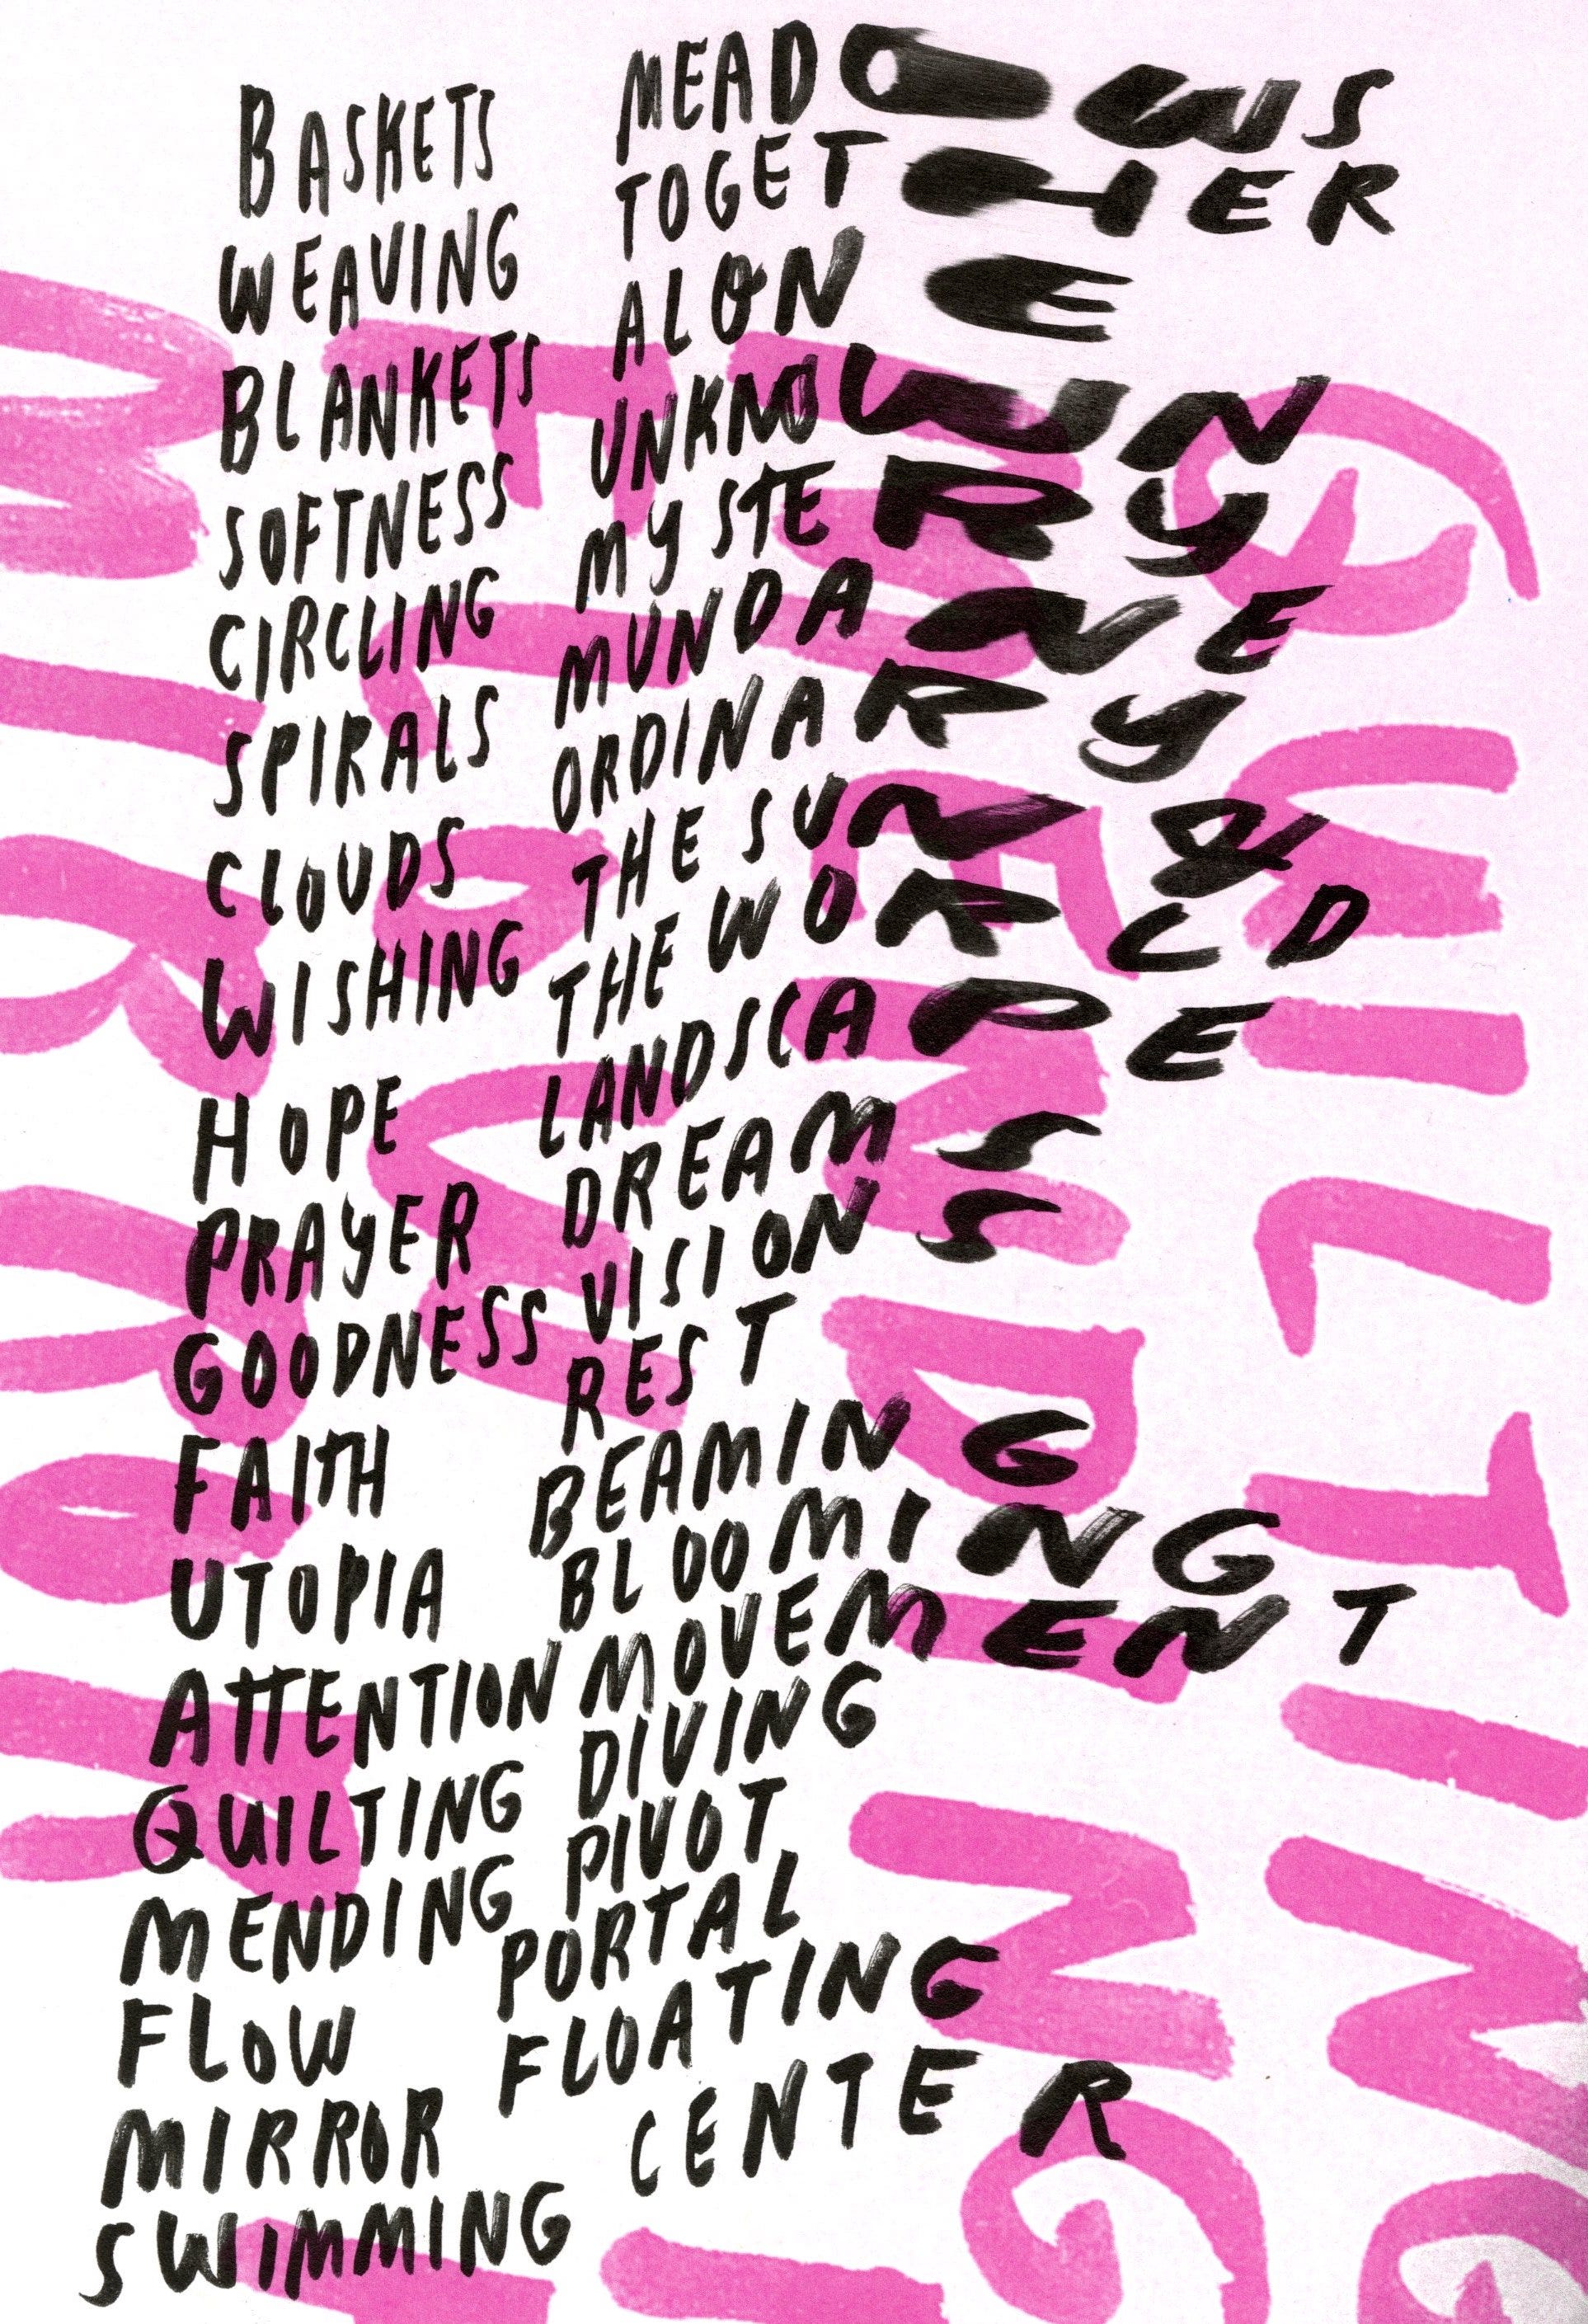 BASKETS
WEAVING
BLANKETS
SOFTNESS
CIRCLING
SPIRALS
CLOUDS
WISHING
HOPE
PRAYER
GOODNESS
FAITH
UTOPIA
ATTENTION
QUILTING
MENDING
FLOW
MIRROR
SWIMMING
MEADOWS
TOGETHER
ALONE
UNKNOWN
MYSTERY
MUNDANE
ORDINARY
THE SUN &
THE WORLD
LANDSCAPE
DREAMS
VISIONS
REST
BEAMING
BLOOMING
MOVEMENT
DIVING
PIVOT
PORTAL
FLOATING
CENTER
QUILTING
MENDING
FLOW
MIRROR